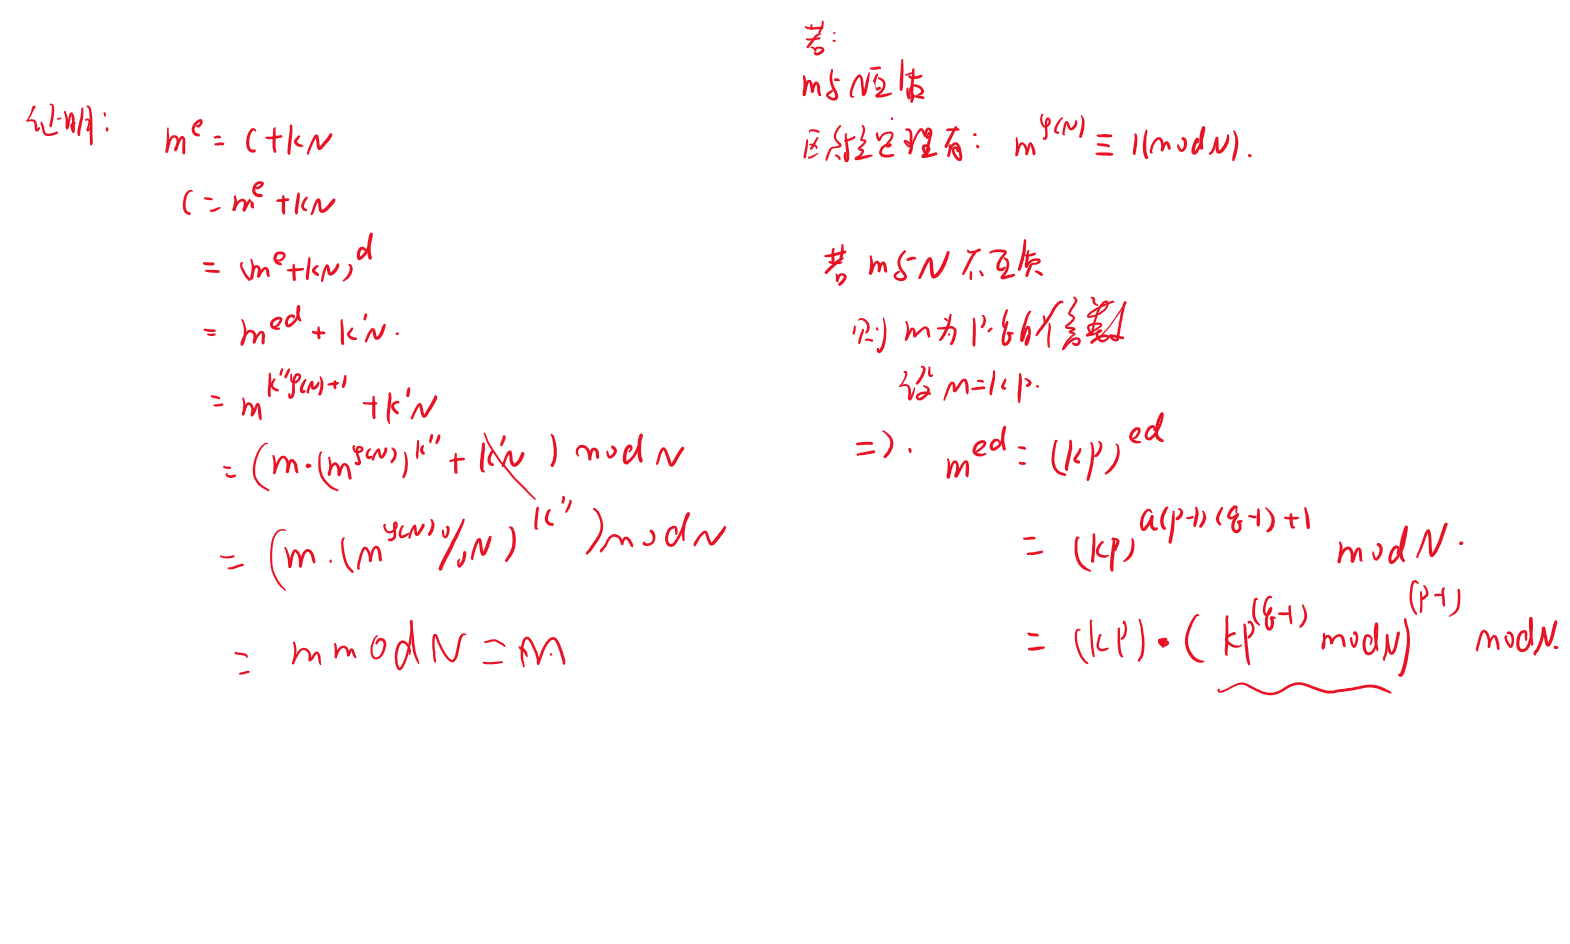 证明:
m^e = c + kN
c = m^e + kN
= (m^e + kN)^d
= m^{ed} + k'N.
= m^{k''φ(N)+1} + k'N
= (m·(m^{φ(N)})^{k''} + k'N) mod N
= (m·(m^{φ(N)}%N)^{k''}) mod N
= m mod N = m
若:
m与N互质
欧拉定理有: m^{φ(N)} ≡ 1(mod N).
若 m与N 不互质
则 m为 p·q的倍数
设 m=kp.
=>. m^{ed} = (kp)^{ed}
= (kp)^{a(p-1)(q-1)+1} mod N.
= (kp)·(kp^{(q-1)} mod N)^{(p-1)} mod N.